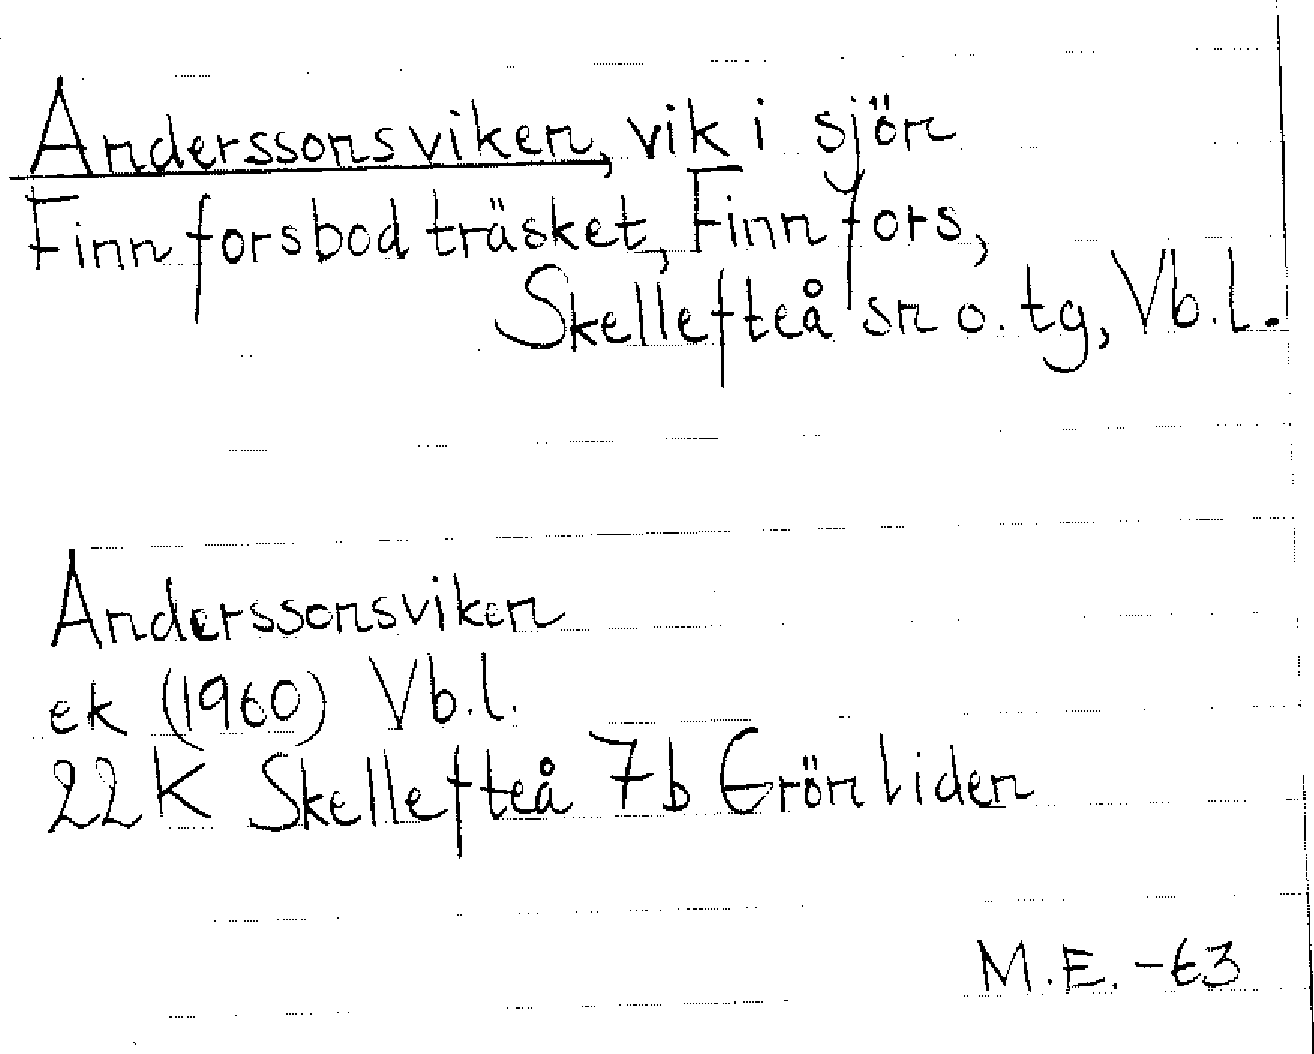 Anderssonsviken, vik i sjön
Finnforsbodträsket, Finnfors,
Skellefteå sn o. tg, Vb.l.
Anderssonsviken
ek (1960) Vb.l.
22K Skellefteå 7b Grönliden
M.E. -63